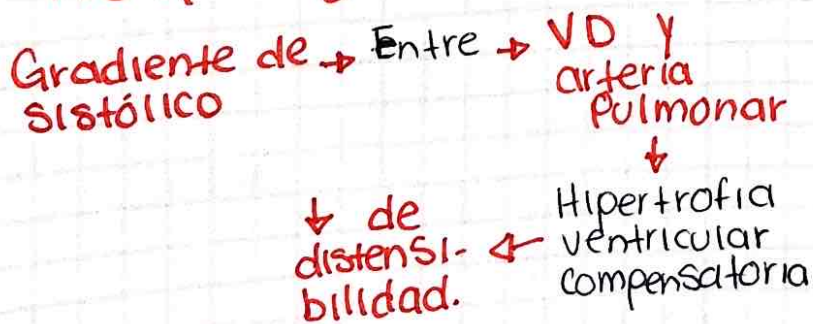 Gradiente de → Entre → VD y
sistólico
arteria
Pulmonar
↓
Hipertrofia
ventricular
compensatoria
←
↓ de
distensi-
bilidad.